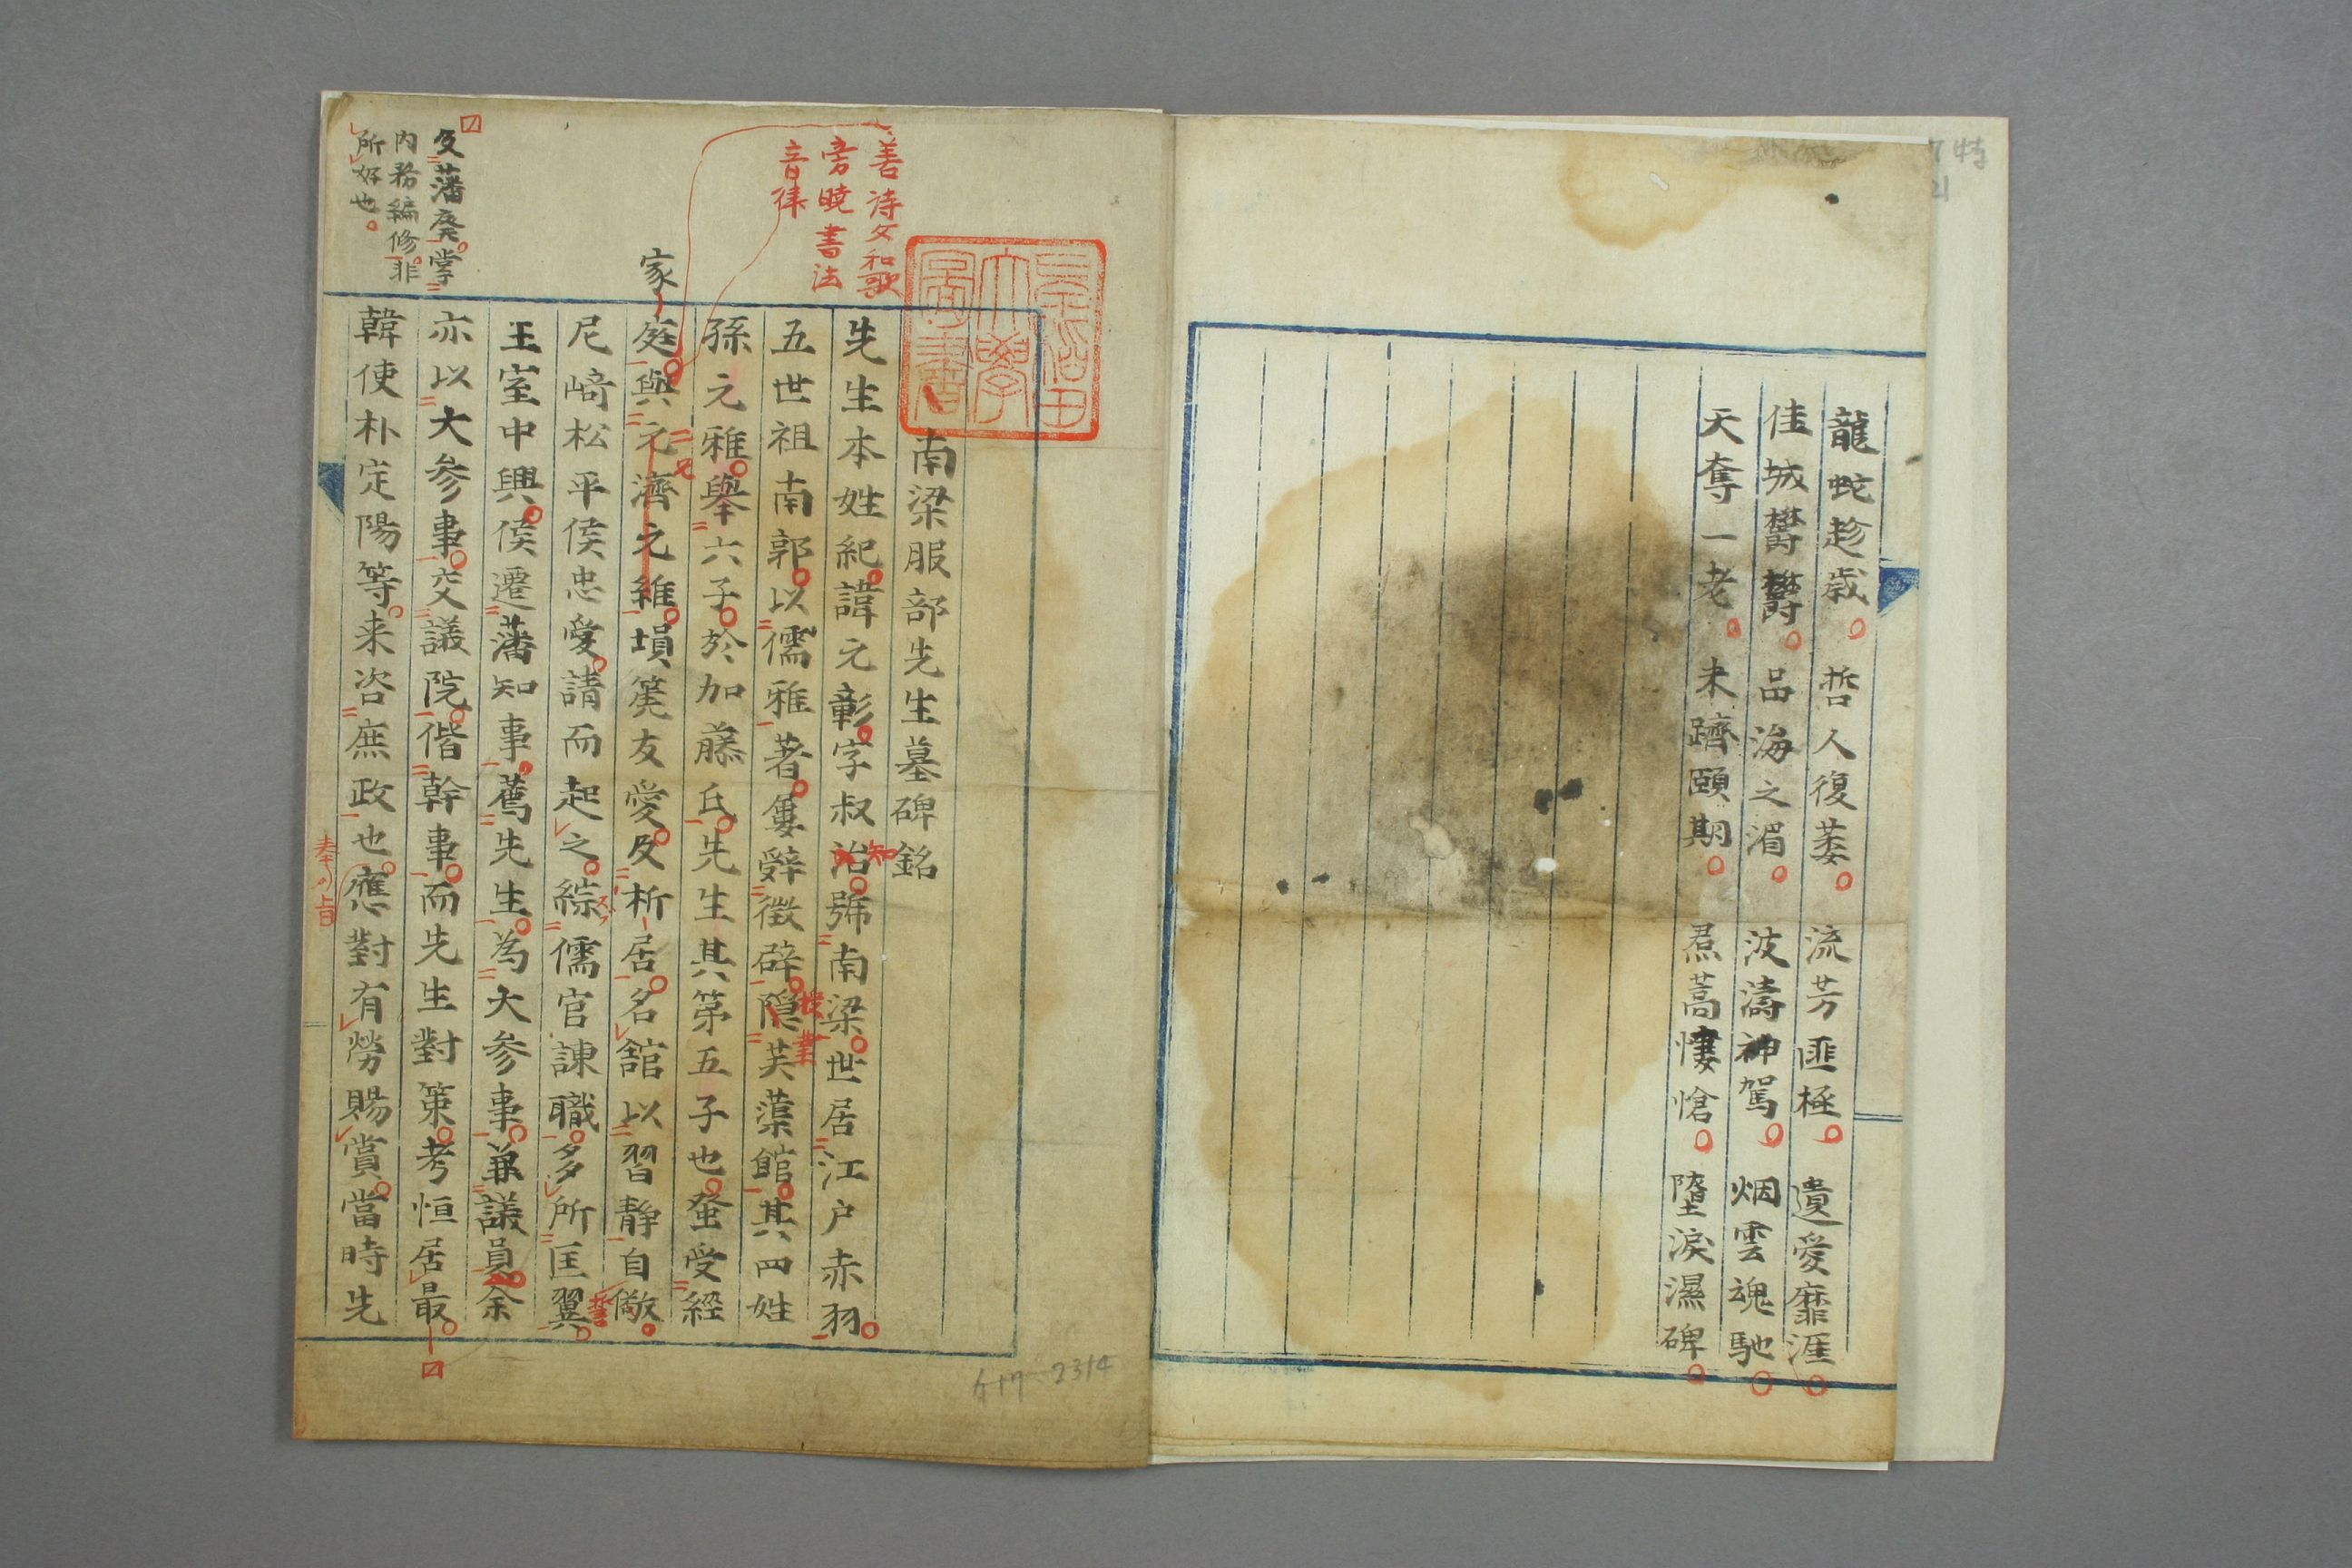 龍蛇趁歳。哲人復萎。流芳匪極。遺愛靡涯。
佳城欝欝。品海之湄。波濤神駕。烟雲魂馳。
天奪一老。未躋頤期。焄蒿悽愴。墮淚濕碑。
特
21
早稲田
大學
圖書
南梁服部先生墓碑銘
先生本姓紀。諱元彰。字叔治。號南梁。世居江户赤羽。
知
五世祖南郭。以儒雅著。屢辭徴辟。隠芙蕖館。其四姓
授業
孫元雅。舉六子。於加藤氏。先生其第五子也。蚤受經
家
庭。與元濟之維。塤篪友愛。及析居。名舘以習静自儆。
二兄
善詩文和歌
旁曉書法
音律
尼﨑松平侯忠愛。請而起之。綜儒官諫職。多所匡翼。
王室中興。侯遷藩知事。薦先生。為大参事。兼議員。余
亦以大参事。交議院。偕幹事。而先生對策。考恒居最。
及藩廢。掌
内務編修。非
所好也。
韓使朴定陽等。来咨庶政也。應對有勞賜賞。當時先
奉旨
イ17-2314